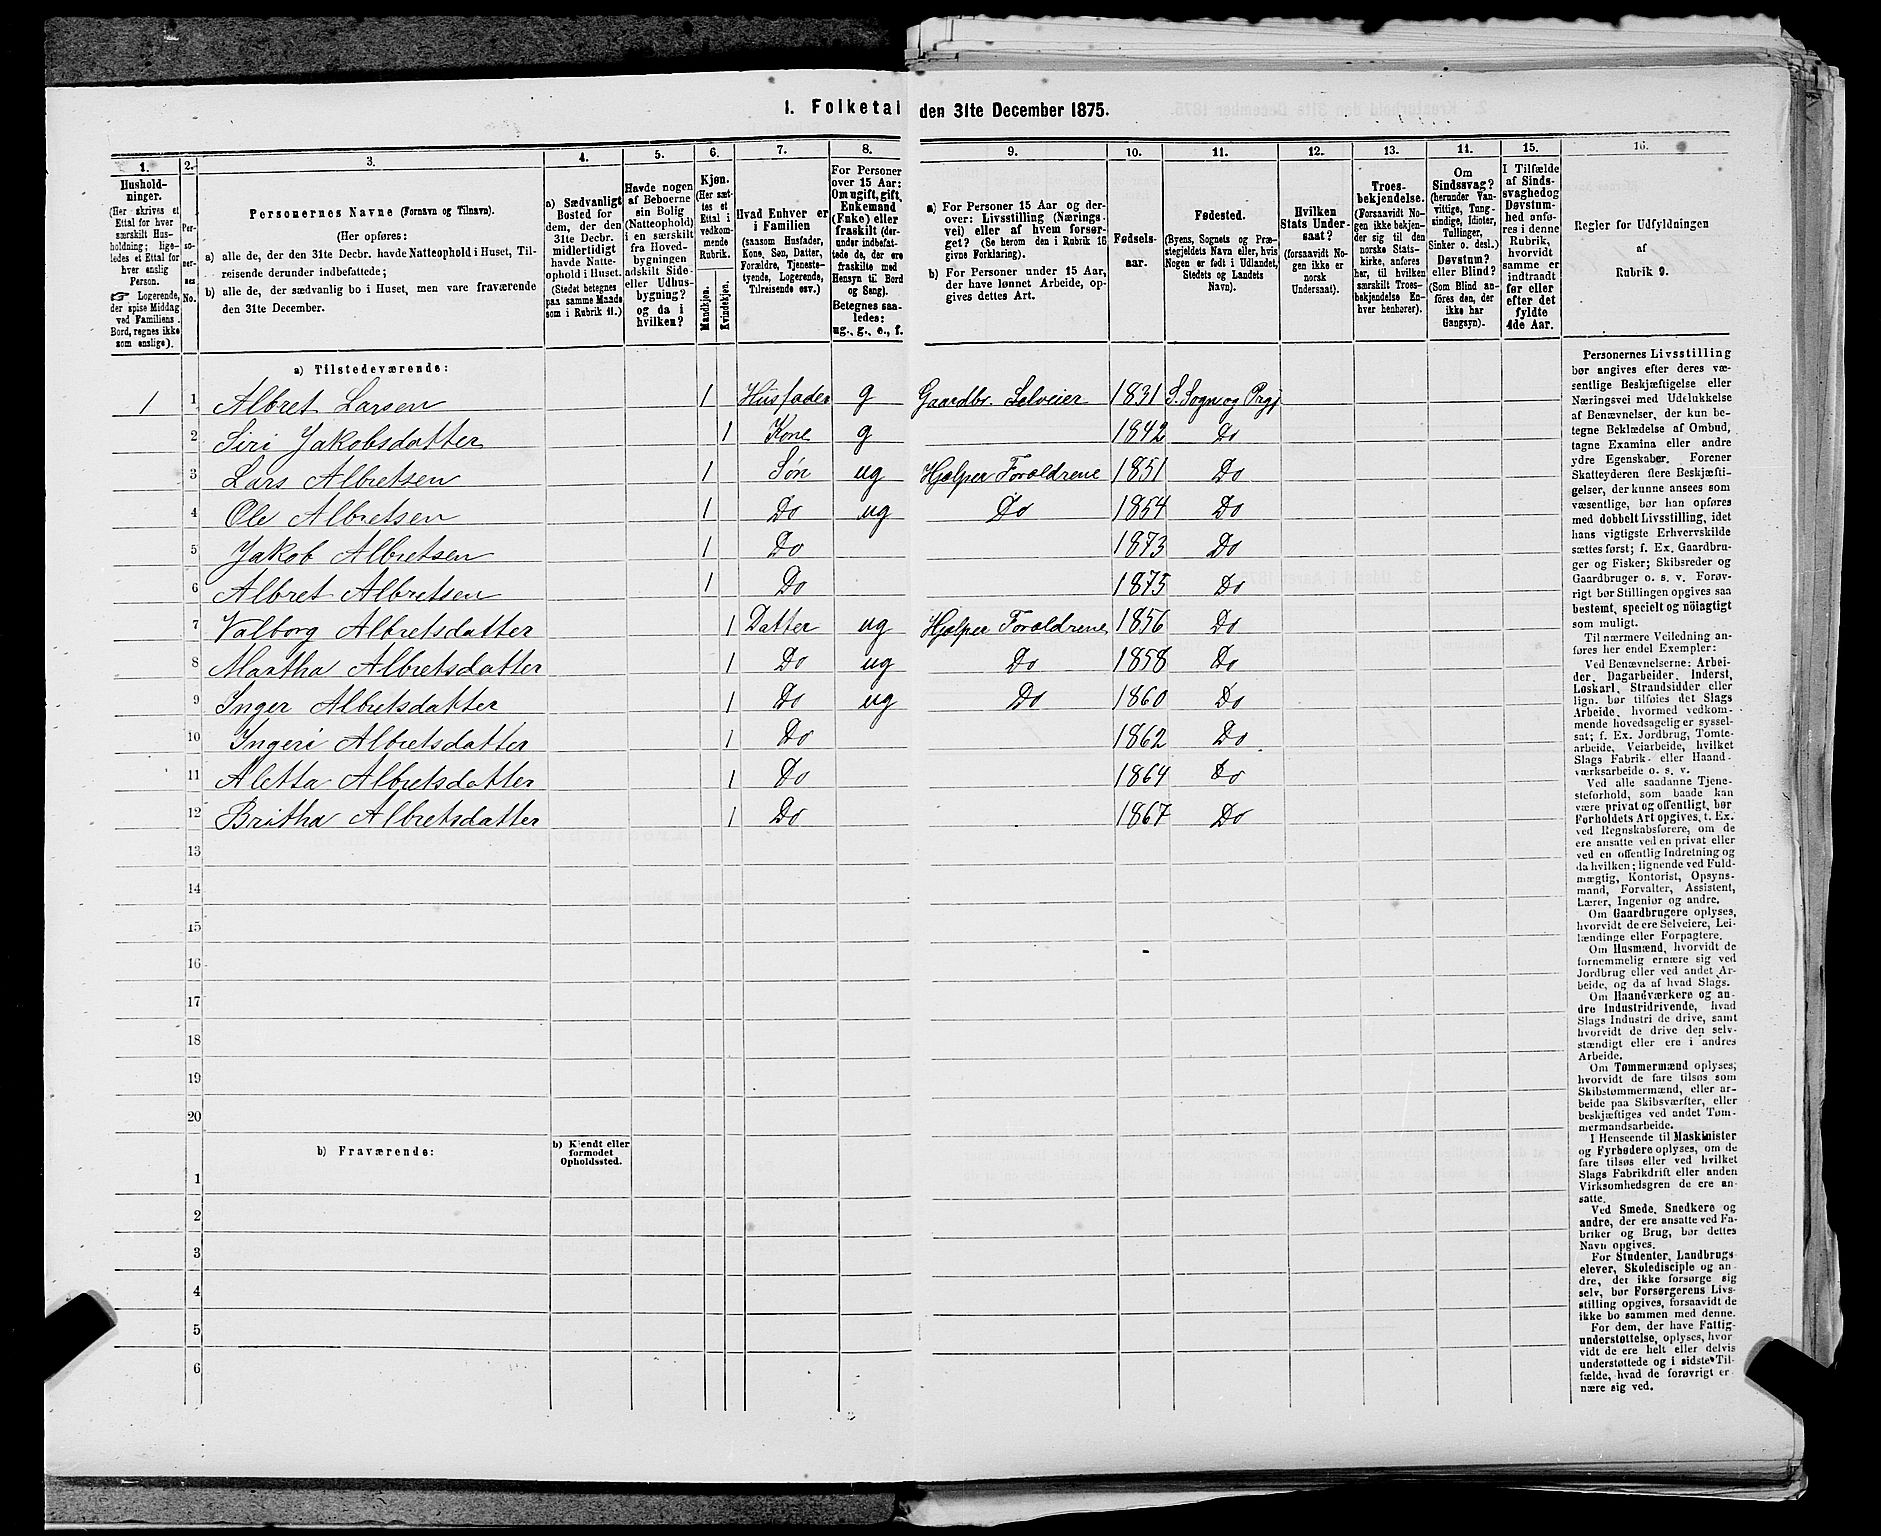 1. Folketal den 31te December 1875.
1. 2. 3. 4. 5. 6. 7. 8. 9. 10. 11. 12. 13. 14. 15. 16.
Hushold-
ninger.
(Her skrives et
Ettal for hver
særskilt Hus-
holdning; lige-
ledes et Ettal for
hver enslig
Person.
☞ Logerende,
der spise Middag
ved Familiens
Bord, regnes ikke
som enslige).
Per-
so-
ner-
nes
No.
Personernes Navne (Fornavn og Tilnavn).
(Her opføres:
a) alle de, der den 31te Decbr. havde Natteophold i Huset, Til-
reisende derunder indbefattede;
b) alle de, der sædvanlig bo i Huset, men vare fraværende
den 31te December.
a) Sædvanligt
Bosted for
dem, der den
31te Decbr.
midlertidigt
havde Natte-
ophold i Huset.
(Stedet betegnes
paa samme Maade
som i Rubrik 11.)
Havde nogen
af Beboerne
sin Bolig
(Natteophold)
i en særskilt
fra Hoved-
bygningen
adskilt Side-
eller Udhus-
bygning?
og da i
hvilken?
Kjøn.
(Her sæt-
tes et
Ettal i
vedkom-
mende
Rubrik.
Mandkjøn.
Kvindekjøn.
Hvad Enhver er
i Familien
(saasom Husfader,
Kone, Søn, Datter,
Forældre, Tjeneste-
tyende, Logerende,
Tilreisende osv.)
For Personer
over 15 Aar:
Om ugift, gift,
Enkemand
(Enke) eller
fraskilt (der-
under indbefat-
tede de, der ere
fraskilte med
Hensyn til Bord
og Seng).
Betegnes saa-
ledes:
ug., g., e., f.
a) For Personer 15 Aar og der-
over: Livsstilling (Nærings-
vei) eller af hvem forsør-
get? (Se herom den i Rubrik 16
givne Forklaring).
b) For Personer under 15 Aar,
der have lønnet Arbeide, op-
gives dettes Art.
Fødsels-
aar.
Fødested.
(Byens, Sognets og Præ-
stegjeldets Navn eller, hvis
Nogen er født i Udlandet,
Stedets og Landets
Navn).
Hvilken
Stats Under-
saat?
(forsaavidt No-
gen ikke er
norsk
Undersaat).
Troes-
bekjendelse.
(Forsaavidt No-
gen ikke bekjen-
der sig til den
norske Stats-
kirke, anføres
her, til hvilken
særskilt Troes-
bekjendelse En-
hver henhører).
Om
Sindssvag?
(herunder Van-
vittige, Tung-
sindige, Idioter,
Tullinger,
Sinker o. desl.)
Døvstum?
eller Blind?
(Som Blind an-
føres den, der
ikke har
Gangsyn).
I Tilfælde
af Sinds-
svaghed og
Døvstum-
hed anfø-
res i denne
Rubrik,
hvorvidt
samme er
indtraadt
før eller
efter det
fyldte
4de Aar.
Regler for Udfyldningen
af
Rubrik 9.
a) Tilstedeværende:
1 1 Albret Larsen 1 Husfader g Gaardbr. Selveier 1831 S. Sogn og Prgj
2 Siri Jakobsdatter 1 Kone g 1842 Do
3 Lars Albretsen 1 Søn ug Hjælper Forældrene 1851 Do
4 Ole Albretsen 1 Do ug Do 1854 Do
5 Jakob Albretsen 1 Do 1873 Do
6 Albret Albretsen 1 Do 1875 Do
7 Valborg Albretsdatter 1 Datter ug Hjælper Forældrene 1856 Do
8 Martha Albretsdatter 1 Do ug Do 1858 Do
9 Inger Albretsdatter 1 Do ug Do 1860 Do
10 Ingeri Albretsdatter 1 Do 1862 Do
11 Aletta Albretsdatter 1 Do 1864 Do
12 Britha Albretsdatter 1 Do 1867 Do
13
14
15
16
17
18
19
20
b) Fraværende:
b) Kjendt eller
formodet
Opholdssted.
1
2
3
4
5
6
Personernes Livsstilling
bør angives efter deres væ-
sentlige Beskjæftigelse eller
Næringsvei med Udelukkelse
af Benævnelser, der kun be-
tegne Beklædelse af Ombud,
tagne Examina eller andre
ydre Egenskaber. Forener
Skatteyderen flere Beskjæfti-
gelser, der kunne ansees som
væsentlige, bør han opføres
med dobbelt Livsstilling, idet
hans vigtigste Erhvervskilde
sættes først; f. Ex. Gaardbru-
ger og Fisker; Skibsreder og
Gaardbruger o. s. v. Forøv-
rigt bør Stillingen opgives saa
bestemt, specielt og nöiagtigt
som muligt.
Til nærmere Veiledning an-
føres her endel Exempler:
Ved Benævnelserne: Arbei-
der, Dagarbeider, Inderst,
Løskarl, Strandsidder eller
lign. bør tilføies det Slags
Arbeide, hvormed vedkom-
mende hovedsagelig er syssel-
sat; f. Ex. Jordbrug, Tomte-
arbeide, Veiarbeide, hvilket
Slags Fabrik- eller Haand-
værksarbeide o. s. v.
Ved alle saadanne Tjene-
steforhold, som baade kan
være privat og offentligt, bør
Forholdets Art opgives, t. Ex.
ved Regnskabsførere, om de
ere ansatte ved en privat eller
ved en offentlig Indretning og
da hvilken; lignende ved Fuld-
mægtig, Kontorist, Opsyns-
mand, Forvalter, Assistent,
Lærer, Ingeniør og andre.
Om Gaardbrugere oplyses,
hvorvidt de ere Selveiere, Lei-
lændinge eller Forpagtere.
Om Husmænd, hvorvidt de
fornemmelig ernære sig ved
Jordbrug eller ved andet Ar-
beide, og da af hvad Slags.
Om Haandværkere og an-
dre Industridrivende, hvad
Slags Industri de drive, samt
hvorvidt de drive den selv-
stændigt eller ere i andres
Arbeide.
Om Tømmermænd oplyses,
hvorvidt de fare tilsøs som
Skibstømmermænd, eller ar-
beide paa Skibsværfter, eller
beskjæftiges ved andet Tøm-
mermandsarbeide.
I Henseende til Maskinister
og Fyrbødere oplyses, om de
fare tilsøs eller ved hvilket
Slags Fabrikdrift eller anden
Virksomhedsgren de ere an-
satte.
Ved Smede, Snedkere og
andre, der ere ansatte ved Fa-
briker og Brug, bør dettes
Navn opgives.
For Studenter, Landbrugs-
elever, Skoledisciple og an-
dre, der ikke forsørge sig
selv, bør Forsørgerens Livs-
stilling opgives, forsaavidt de
ikke bo sammen med denne.
For dem, der have Fattig-
understøttelse, oplyses, hvor-
vidt de ere helt eller delvis
understøttede og i sidste Til-
fælde, hvad de forøvrigt er-
nære sig ved.